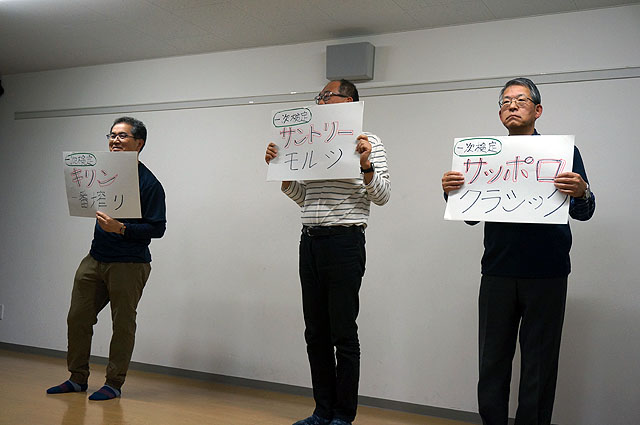 一次検定
キリン
一番搾り
一次検定
サントリー
モルツ
一次検定
サッポロ
クラシック